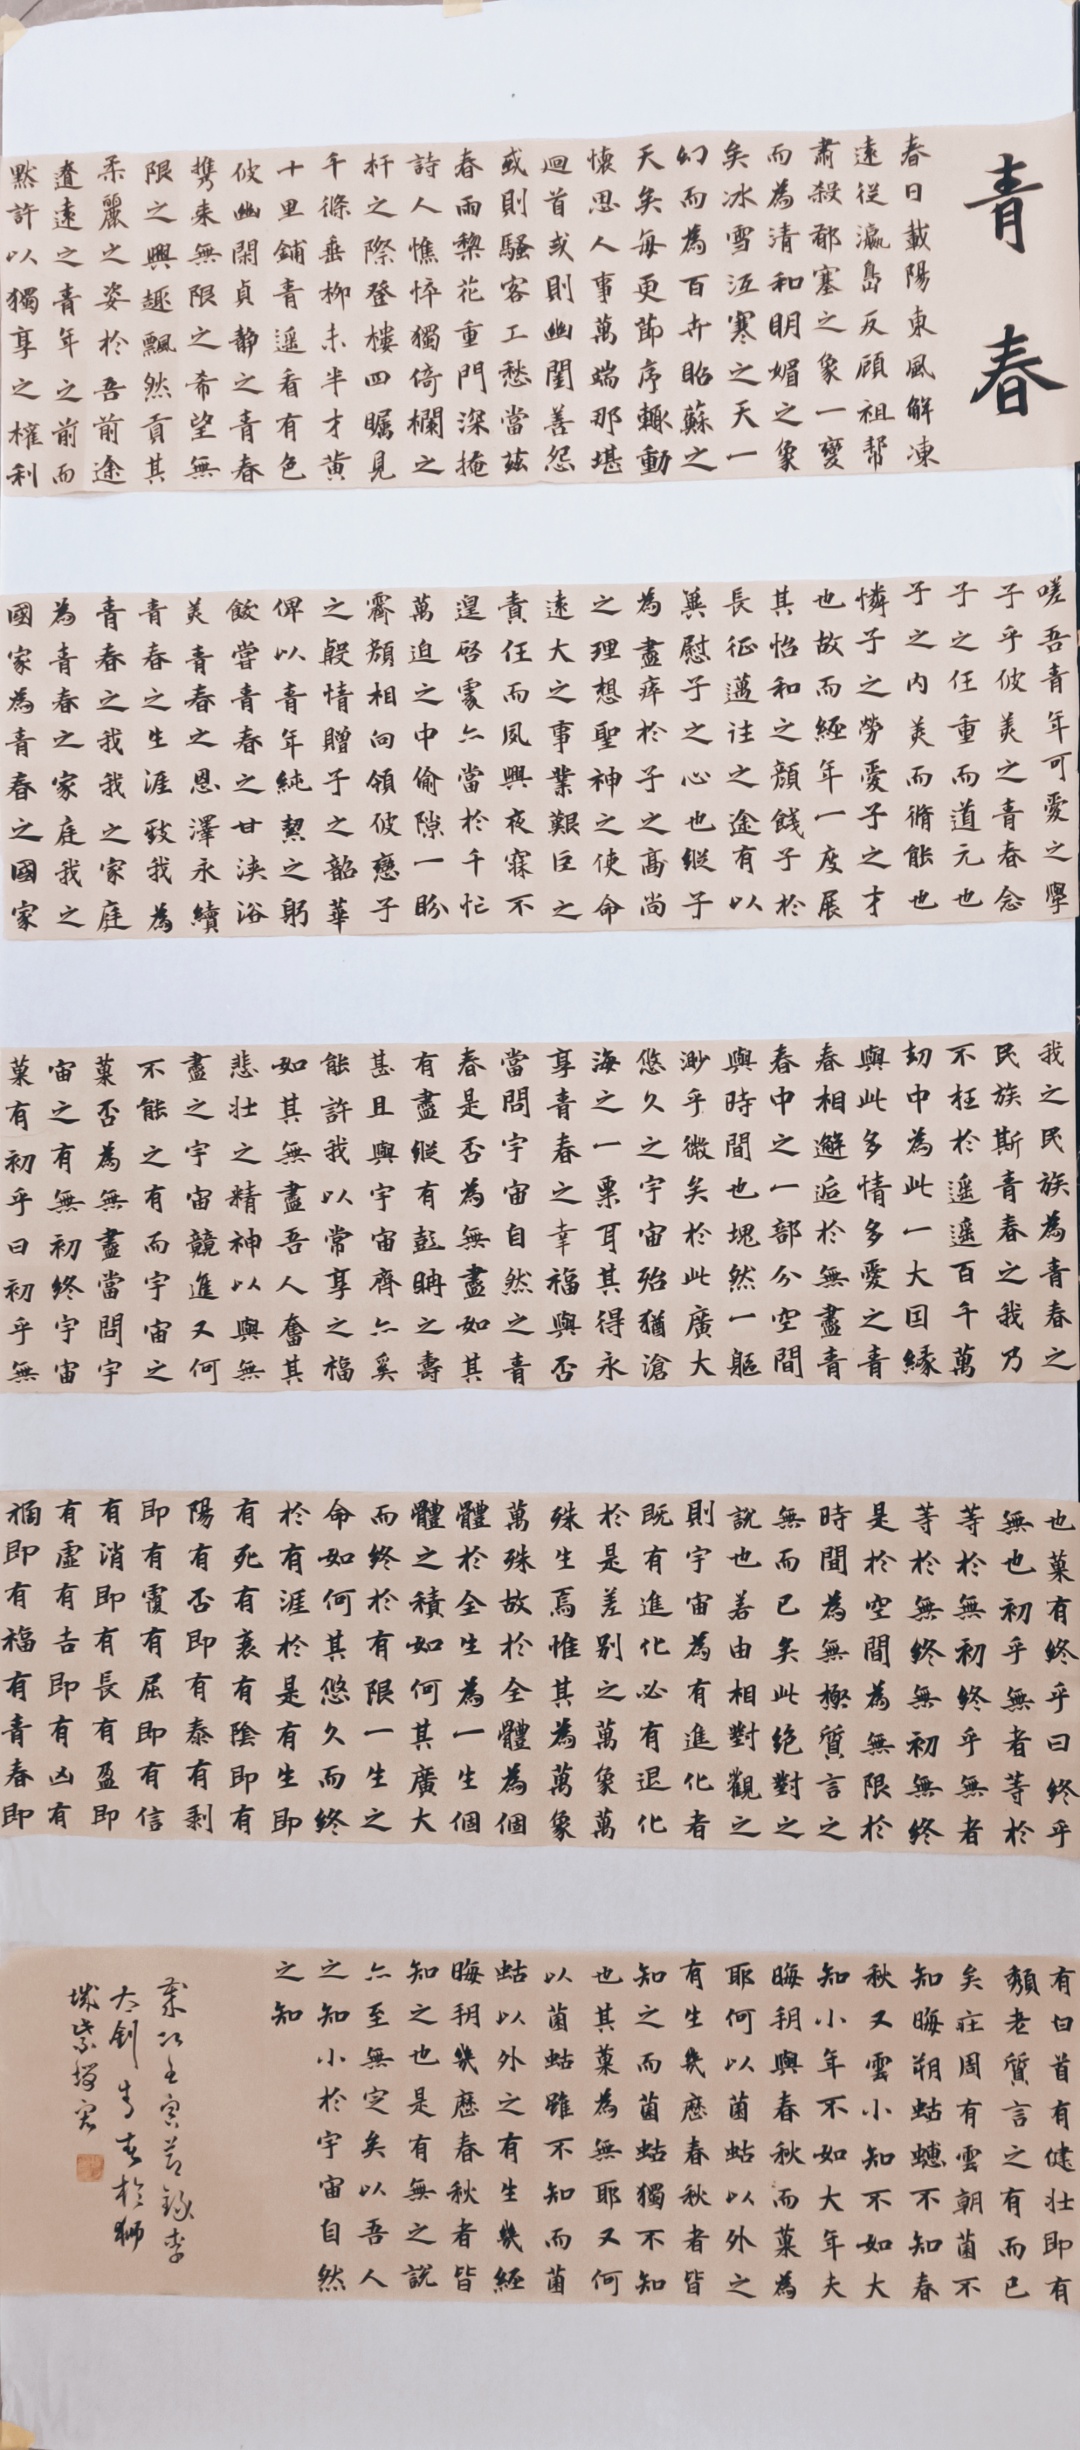 青春
春日載陽東風解凍
遠從瀛島反顧祖幫
肅殺郁塞之象一變
而為清和明媚之象
矣冰雪沍寒之天一
幻而為百卉昭蘇之
天矣每更節序輒動
懷思人事萬端那堪
迴首或則幽閨善怨
或則騷客工愁當茲
春雨棃花重門深掩
詩人憔悴獨倚欄之
杆之際登樓四矚見
千條垂柳未半才黃
十里鋪青遥看有色
彼幽閑貞静之青春
携来無限之希望無
限之興趣飄然貢其
柔麗之姿於吾前途
遼遠之青年之前而
黙許以獨享之權利
嗟吾青年可愛之學
子乎彼美之青春念
子之任重而道元也
子之内美而脩能也
憐子之勞愛子之才
也故而經年一度展
其怡和之顔餞子於
長征邁往之途有以
冀慰子之心也縱子
為盡瘁於子之高尚
之理想聖神之使命
遠大之事業艱巨之
責任而夙興夜寐不
遑啓處亦當於千忙
萬迫之中偷隙一盼
霽顔相向領彼戀子
之殷情贈子之韶華
俾以青年純契之躬
餃嘗青春之甘浹浴
美青春之恩澤永續
青春之生涯致我為
青春之我我之家庭
為青春之家庭我之
國家為青春之國家
我之民族為青春之
民族斯青春之我乃
不枉於遥遥百千萬
劫中為此一大因緣
與此多情多愛之青
春相邂逅於無盡青
春中之一部分空間
與時間也塊然一軀
渺乎微矣於此廣大
悠久之宇宙殆猶滄
海之一粟耳其得永
享青春之幸福與否
當問宇宙自然之青
春是否為無盡如其
有盡縱有彭聃之壽
甚且與宇宙齊亦奚
能許我以常享之福
如其無盡吾人奮其
悲壮之精神以與無
盡之宇宙競進又何
不能之有而宇宙之
菓否為無盡當問宇
宙之有無初終宇宙
菓有初乎曰初乎無
也菓有終乎曰終乎
無也初乎無者等於
等於無初終乎無者
等於無終無初無終
是於空間為無限於
時間為無極質言之
無而已矣此绝對之
說也若由相對觀之
則宇宙為有進化者
既有進化必有退化
於是差别之萬象萬
殊生焉惟其為萬象
萬殊故於全體為個
體於全生為一生個
體之積如何其廣大
而終於有限一生之
命如何其悠久而終
於有涯於是有生即
有死有衰有陰即有
陽有否即有泰有剥
即有覆有屈即有信
有消即有長有盈即
有虚有吉即有凶有
禍即有福有青春即
有白首有健壮即有
頽老質言之有而已
矣莊周有雲朝菌不
知晦朔蛄蟪不知春
秋又雲小知不如大
知小年不如大年夫
晦朔與春秋而菓為
耶何以菌蛄以外之
有生幾歷春秋者皆
知之而菌蛄獨不知
也其菓為無耶又何
以菌蛄雖不知而菌
蛄以外之有生幾經
晦朔幾歷春秋者皆
知之也是有無之說
亦至無定矣以吾人
之知小於宇宙自然
之知
壬寅節錄李
大釗青春於獅
城紫